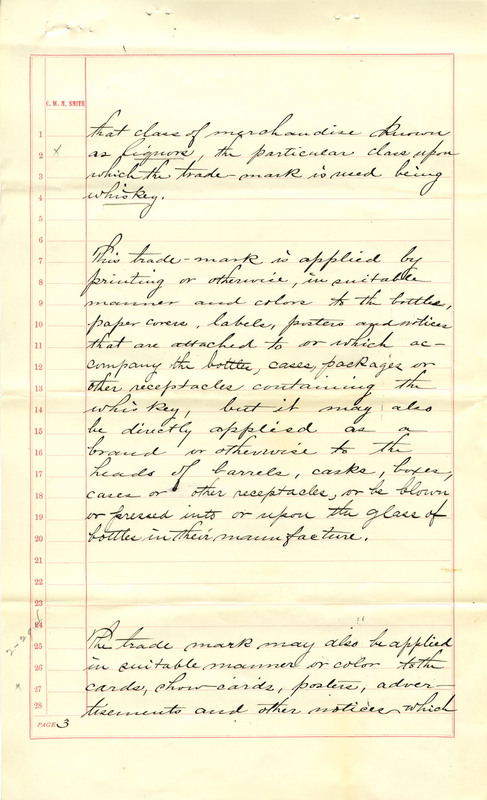 C. W. M. SMITH
1 that class of merchandise known
2 x as liquors, the particular class upon
3 which the trade-mark is used being
4 whiskey.
5
6
7 This trade-mark is applied by
8 printing or otherwise, in suitable
9 manner and colors to the bottles,
10 paper covers, labels, posters and notices
11 that are attached to or which ac-
12 company the bottle, cases, packages or
13 other receptacles containing the
14 whiskey, but it may also
15 be directly applied as a
16 brand or otherwise to the
17 heads of barrels, casks, boxes,
18 cases or other receptacles, or be blown
19 or pressed into or upon the glass of
20 bottles in their manufacture.
21
22
23
24
25 The trade mark may also be applied
26 in suitable manner or color to the
27 cards, show cards, posters, adver-
28 tisements and other notices which
PAGE 3